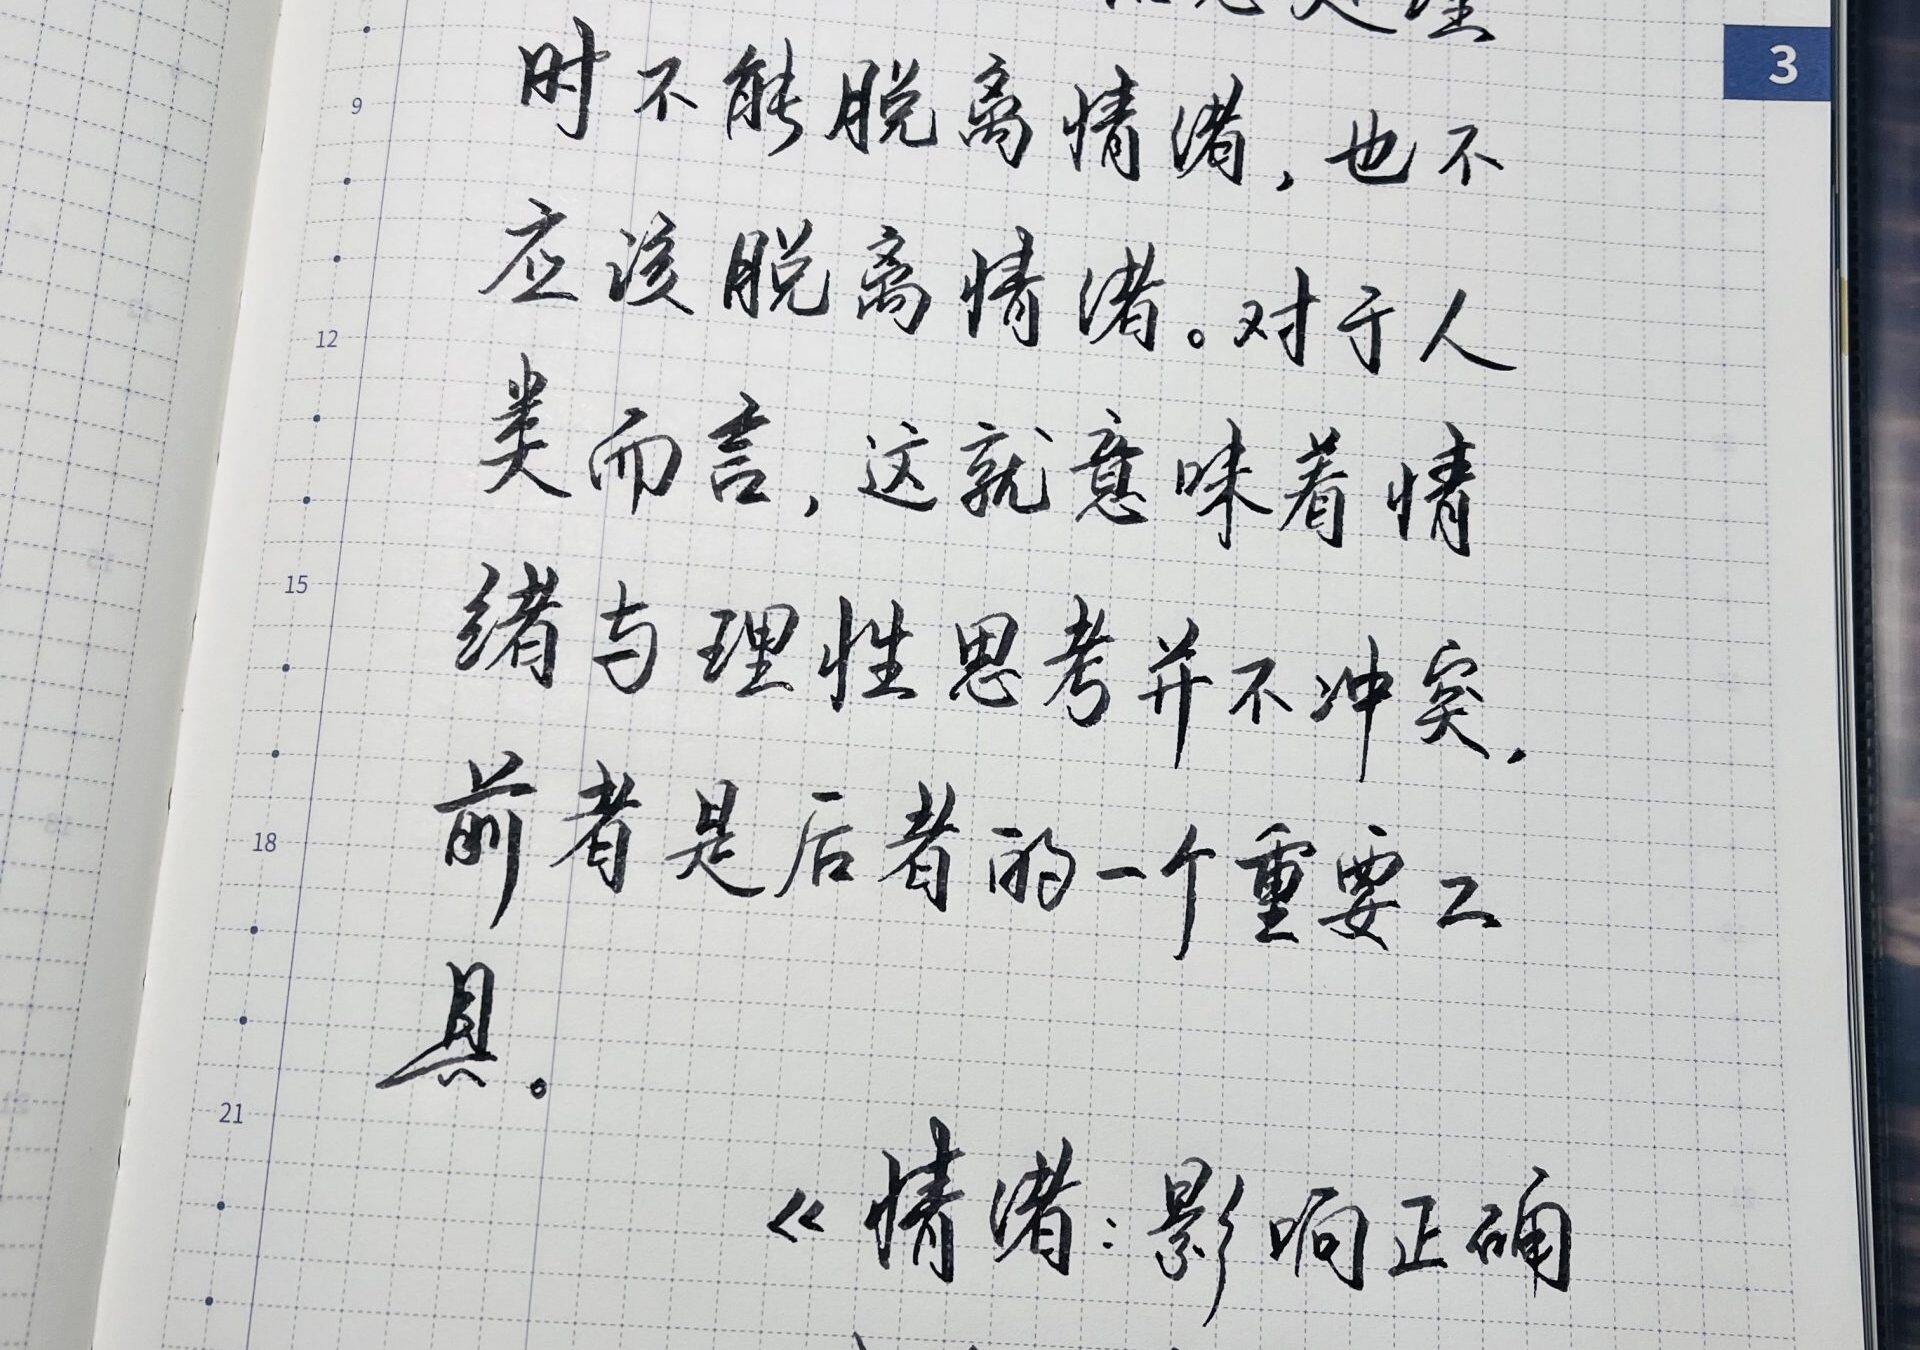 处理
3
时不能脱离情绪，也不
9
应该脱离情绪。对于人
12
类而言，这就意味着情
15
绪与理性思考并不冲突，
18
前者是后者的一个重要工
具。
21
《情绪：影响正确